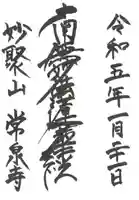 令和五年一月二十一日
南無妙法蓮華経
妙聚山 常泉寺